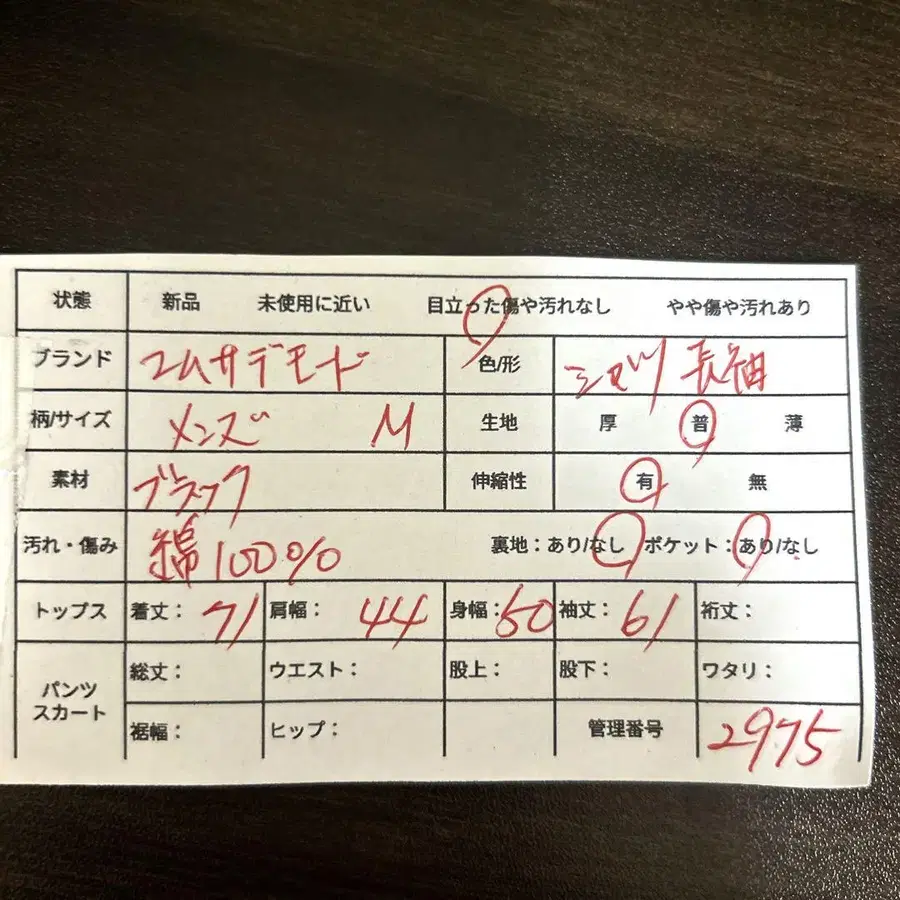 状態 新品 未使用に近い 目立った傷や汚れなし やや傷や汚れあり
ブランド コムサデモード 色/形 シャツ 長袖
柄/サイズ メンズ M 生地 厚 普 薄
素材 ブラック 伸縮性 有 無
汚れ・傷み 綿100% 裏地：あり/なし ポケット：あり/なし
トップス 着丈： 71 肩幅： 44 身幅： 50 袖丈： 61 裄丈：
パンツ スカート 総丈： ウエスト： 股上： 股下： ワタリ：
裾幅： ヒップ： 管理番号 2975